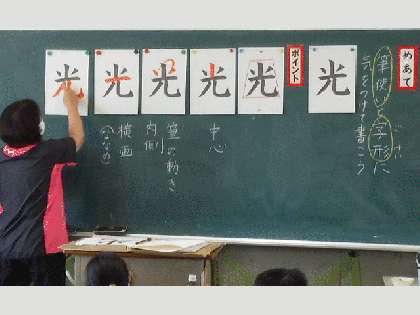 めあて
筆使い
字形に
気をつけて書こう
光
ポイント
光
光
光
光
光
中心
筆の動き
内側
横画
(ななめ)